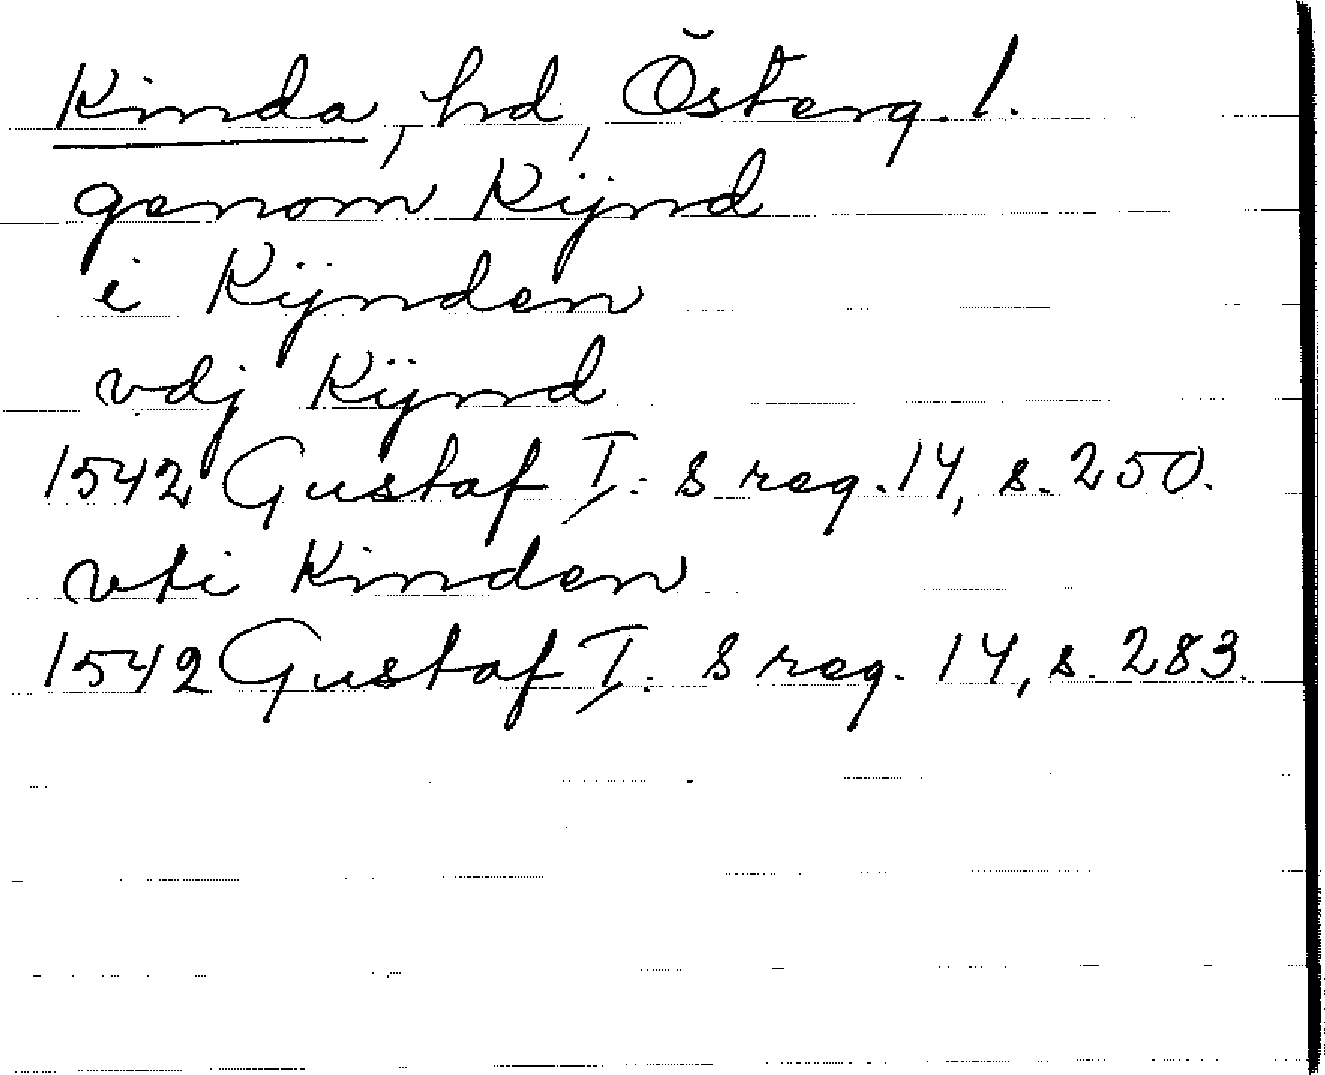 Kinda, hd, Österg. l.
genom Kÿnd
i Kÿnden
vdj Kÿnd
1542 Gustaf I:s reg. 14, s. 250.
vti Kinden
1542 Gustaf I:s reg. 14, s. 283.